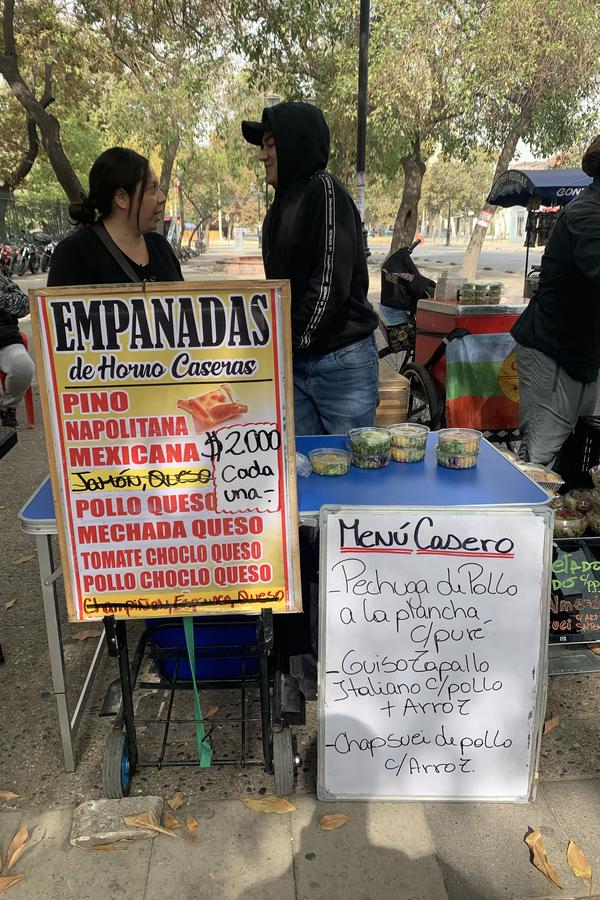 EMPANADAS
de Horno Caseras
PINO
NAPOLITANA
MEXICANA
Jamón, Queso
POLLO QUESO
MECHADA QUESO
TOMATE CHOCLO QUESO
POLLO CHOCLO QUESO
Champiñon, Espinaca, Queso
$2000
Cada
una.-
Menú Casero
- Pechuga di Pollo
a la plancha
c/puré
- Guiso Zapallo
Italiano c/pollo
+ Arroz
- Chapsuei de pollo
c/Arroz.